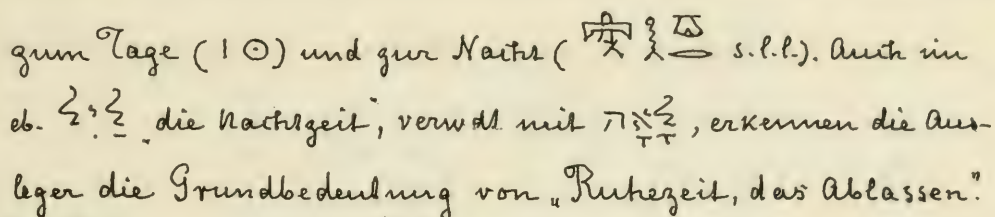 zum Tage (I ⊙) und zur Nacht ( s.l.l.). Auch im
eb. לַיִל „die Nachtzeit", verwdt mit לָיְלָה, erkennen die Aus-
leger die Grundbedeutung von „Ruhezeit, das Ablassen."